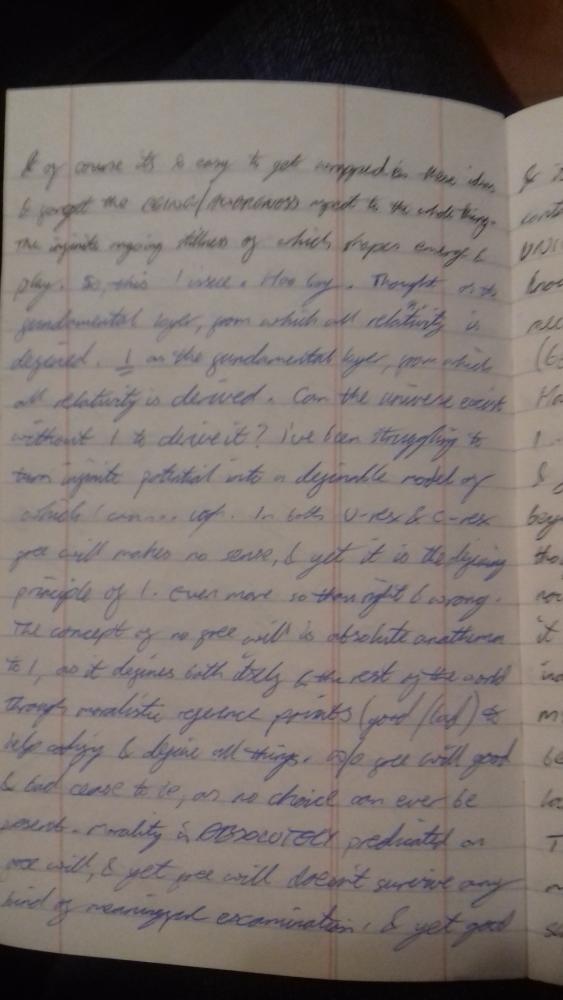 & of course it's so easy to get wrapped in these ideas
& forget the aspect to the whole thing.
The infinite ongoing stillness of which shapes energy &
play. So, this I insect. Hoo boy. Thought as the
fundamental layer, from which all relativity is
defined. I as the fundamental layer, from which
all relativity is derived. Can the universe exist
without I to derive it? I've been struggling to
turn infinite potential into a definable model of
which I can... In both U-rex & C-rex
free will makes no sense, & yet it is the defining
principle of I. Even more so than right & wrong.
The concept of no free will is absolute anathema
to I, as it defines both itself & the rest of the world
through moralistic reference points (good/bad) to
help codify & define all things. w/o free will good
& bad cease to be, as no choice can ever be
present. Morality is ABSOLUTELY predicated on
free will, & yet free will doesn't survive any
kind of meaningful examination. & yet good
& it
cont
UNIV
know
nec
(G
Ha
I -
&
bey
tho
nou
it
ind
m
be
loc
T
se